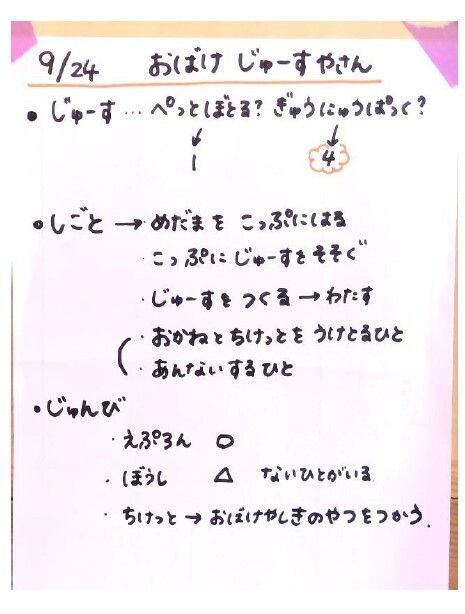 9/24 おばけ じゅーすやさん
• じゅーす … ぺっとぼとる? ぎゅうにゅうぱっく?
↓ ↓
1 4
• しごと → ・めだまを こっぷにはる
・こっぷに じゅーすをそそぐ
・じゅーすを つくる → わたす
・おかねとちけっとを うけとるひと
・あんないするひと
• じゅんび
・えぷろん ○
・ぼうし △ ないひとがいる
・ちけっと → おばけやしきのやつをつかう.